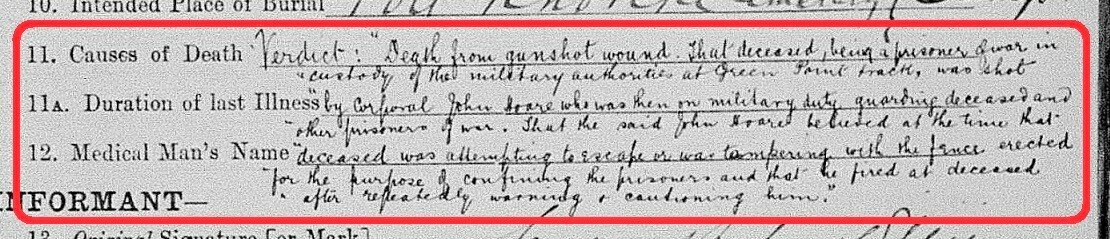 10. Intended Place of Burial
11. Causes of Death Verdict: "Death from gunshot wound. That deceased, being a prisoner of war in
"custody of the military authorities at Green Point track, was shot
11A. Duration of last Illness "by Corporal John Hoare who was then on military duty guarding deceased and
"other prisoners of war. That the said John Hoare believed at the time that
12. Medical Man's Name "deceased was attempting to escape or was tampering with the fence erected
"for the purpose of confining the prisoners and that he fired at deceased
"after repeatedly warning & cautioning him."
INFORMANT—
13. Original Signature [or Mark]